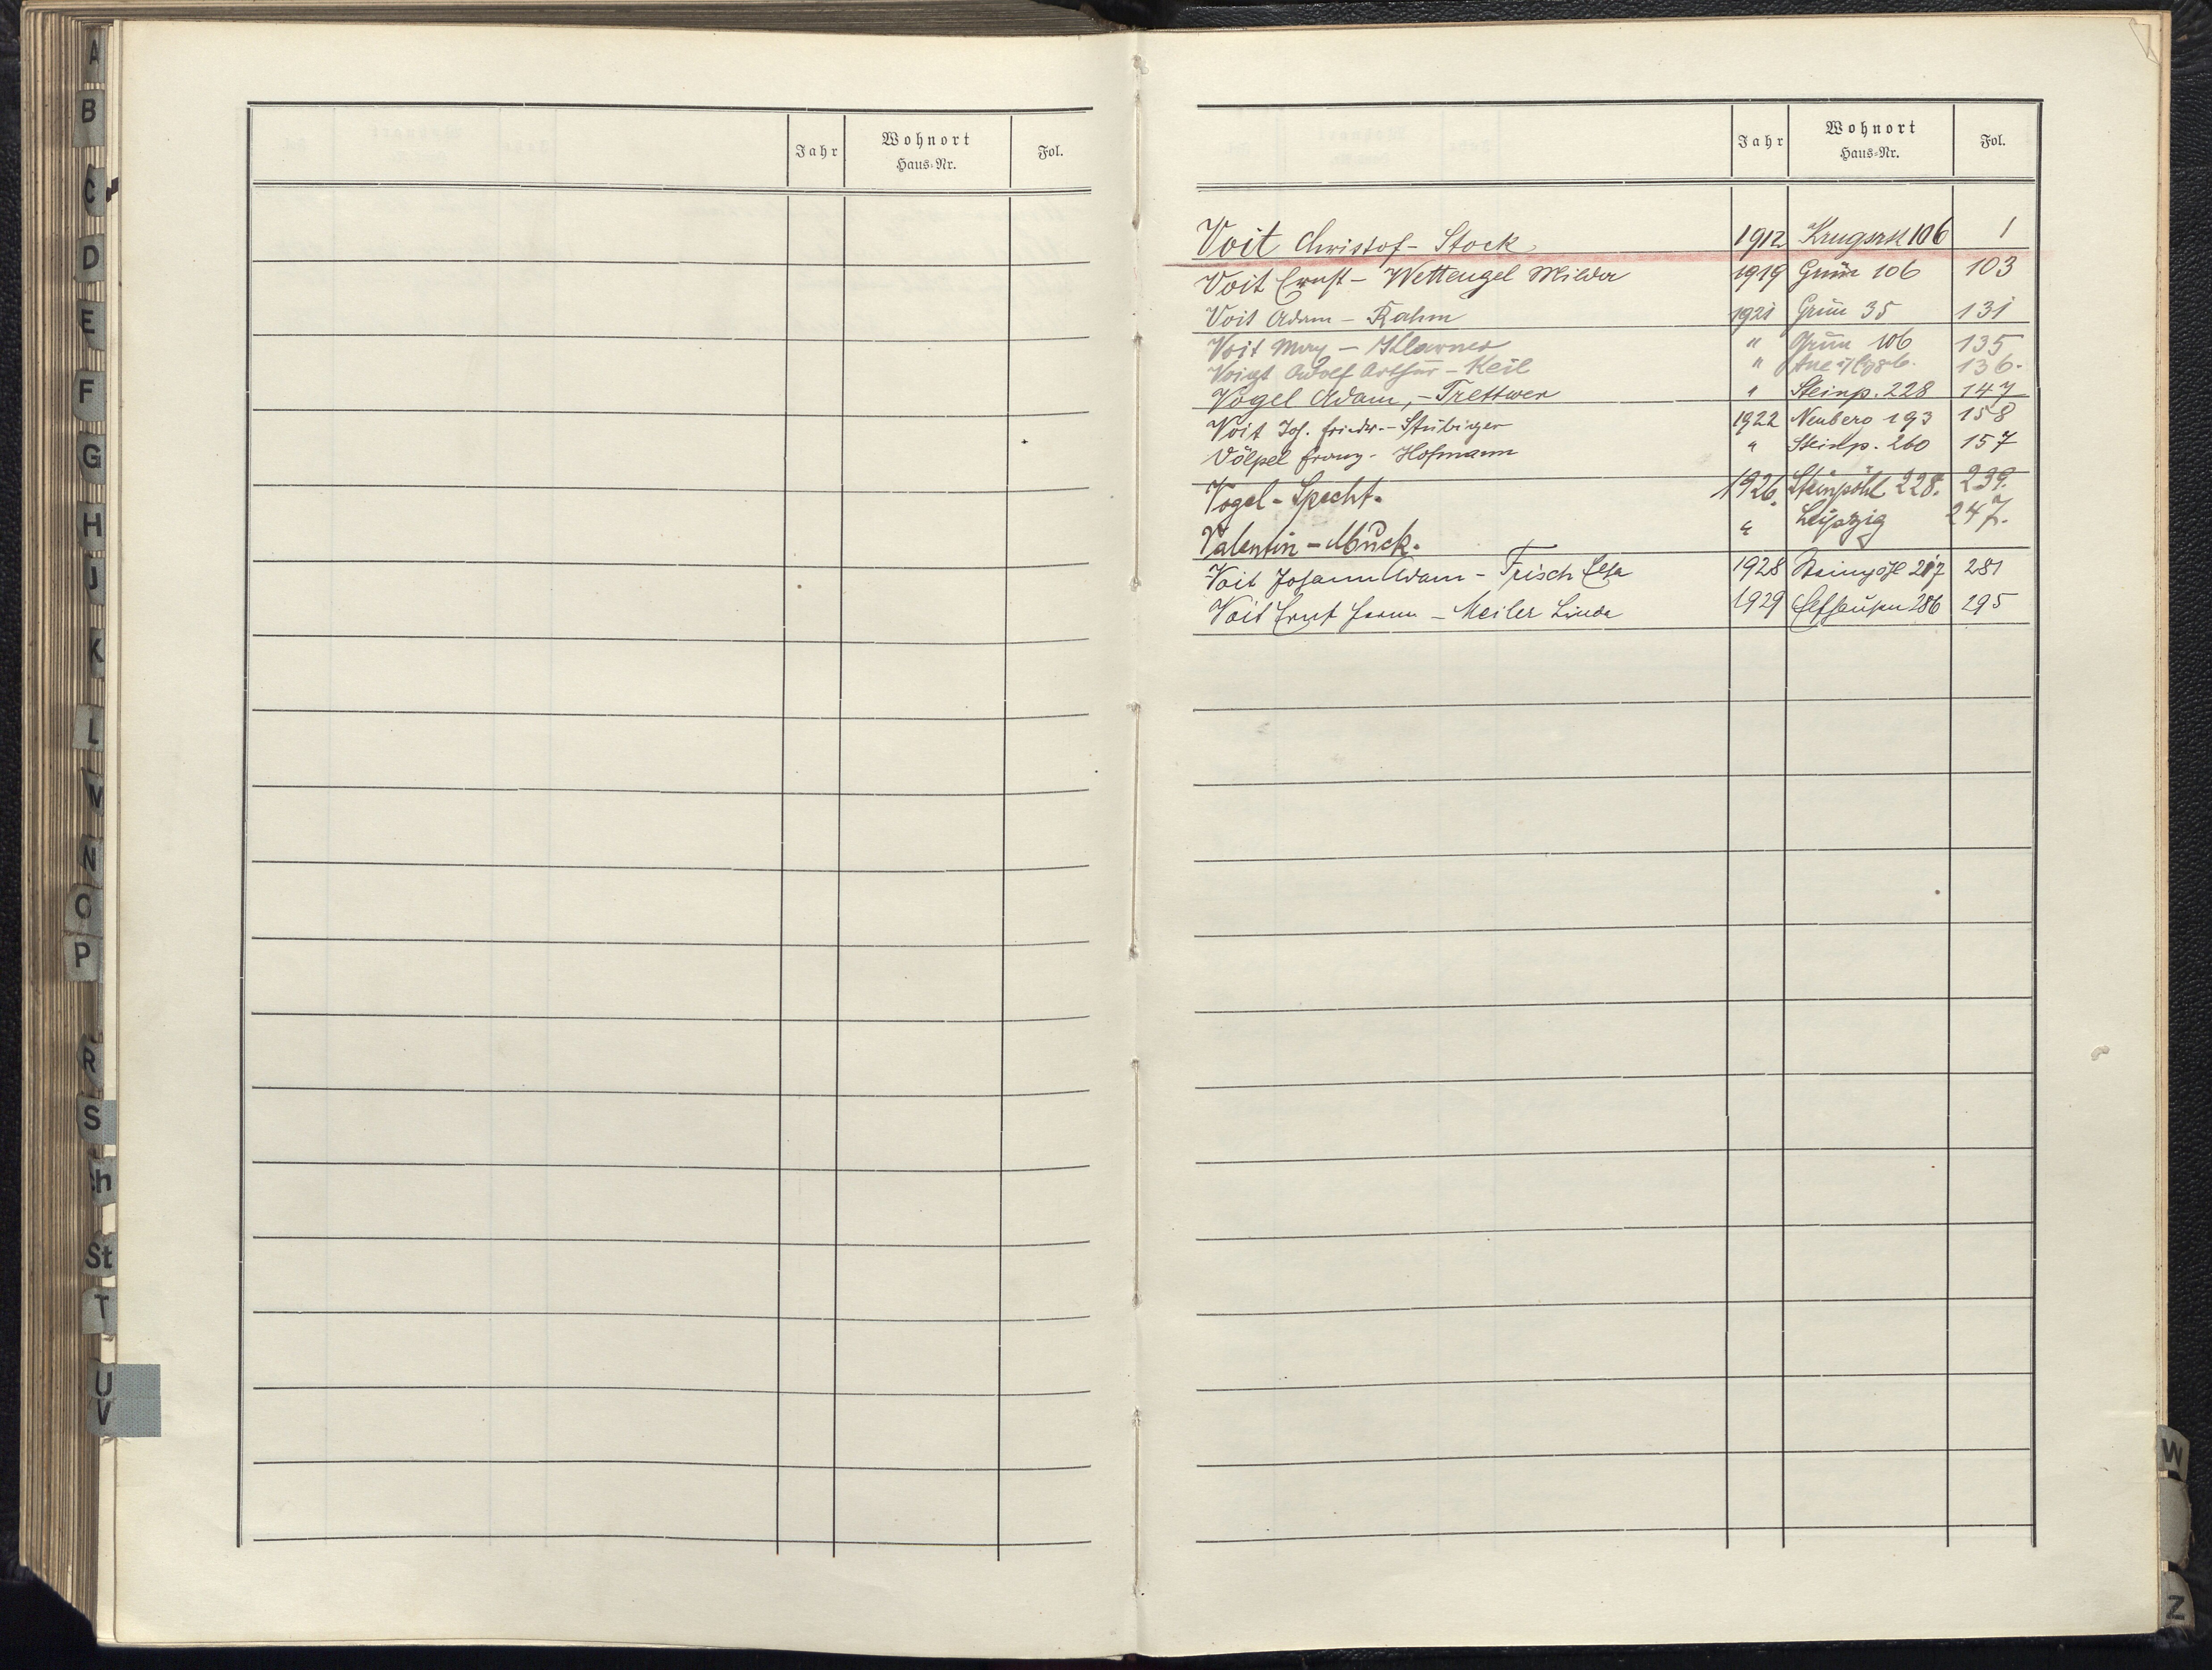 A
B
C
D
E
F
G
H
J
K
L
M
N
O
P
R
S
ch
St
T
U
V
Jahr Wohnort Haus-Nr. Fol.
Jahr Wohnort Haus-Nr. Fol.
Voit Christof - Stock 1912 Krugsr 106 1
Voit Ernst - Wettengel Milda 1919 Grün 106 103
Voit Adam - Rahm 1921 Grün 35 131
Voit - " Grün 106 135
Voigt Adolf Arthur - Keil " 136.
Vogel Adam, - Trettwer " Steinp. 228 147
Voit Joh. Friedr. - Stübinger 1922 Neuberg 193 158
Völpel Franz - Hofmann " Steinp. 260 157
Vogel - Specht. 1926. Steinpöhl 228. 239.
Valentin - Muck. " Leipzig 247.
Voit Johann Adam - Frisch Elsa 1928 Steinpöhl 217 281
Voit Ernst - Meiler Linda 1929 286 295
W
Z